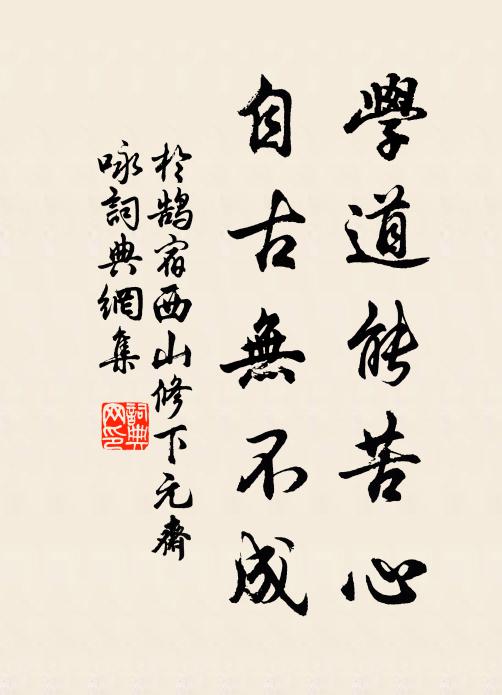 學道能苦心
自古無不成
於鵠宿西山修下元齋
咏詞典網集
詞典
网印